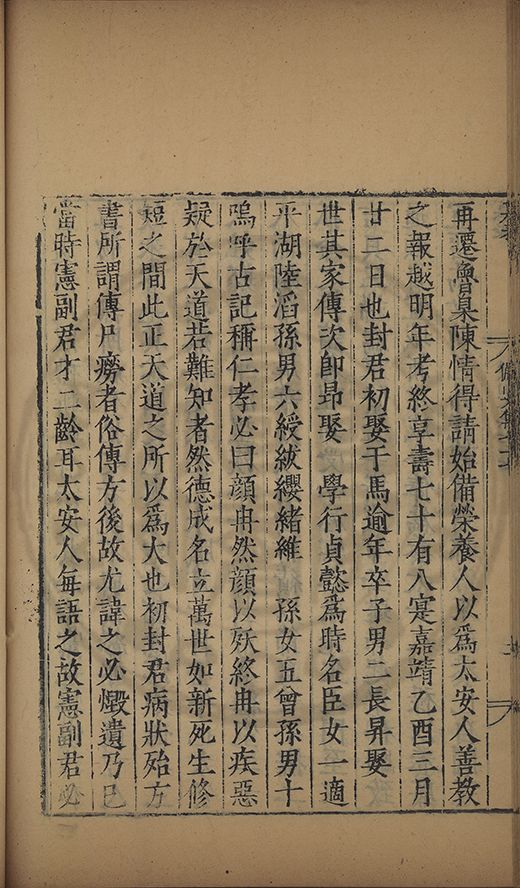 再遷魯臬陳情得請始備榮養人以爲太安人善教
之報越明年考終享壽七十有八寔嘉靖乙酉三月
廿二日也封君初娶于馬逾年卒子男二長昇娶
世其家傳次卽昂娶 學行貞懿爲時名臣女一適
平湖陸滔孫男六綬紱纓緒維 孫女五曾孫男十
嗚乎古記稱仁孝必曰顔冉然顔以殀終冉以疾惡
疑於天道若難知者然德成名立萬世如新死生修
短之間此正天道之所以爲大也初封君病狀殆方
書所謂傳尸癆者俗傳方後故尤諱之必燬遺乃已
當時憲副君才二齡耳太安人每語之故憲副君必